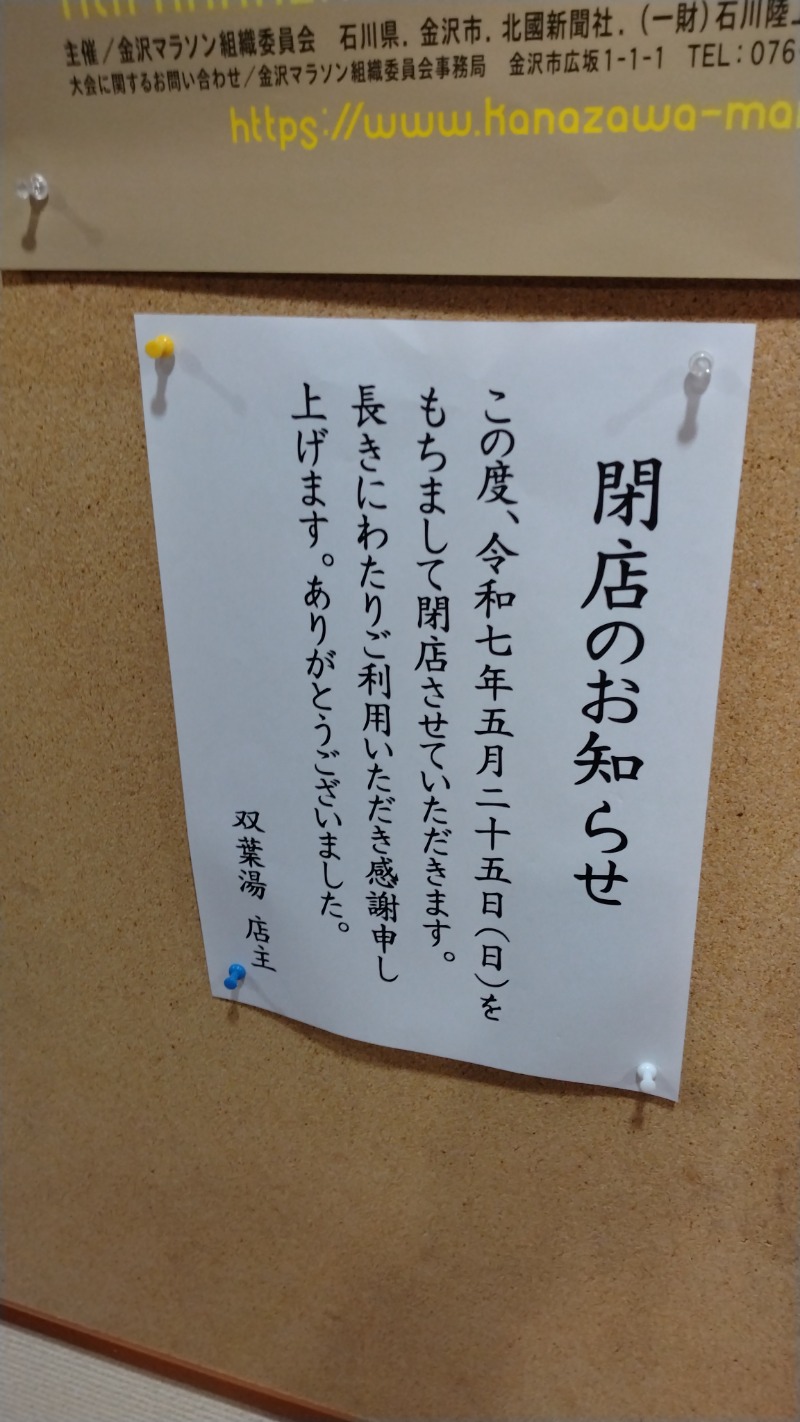 主催/金沢マラソン組織委員会 石川県. 金沢市. 北國新聞社. (一財)石川陸
大会に関するお問い合わせ/金沢マラソン組織委員会事務局 金沢市広坂1-1-1 TEL:076
https://www.kanazawa-mar
閉店のお知らせ
この度、令和七年五月二十五日(日)を
もちまして閉店させていただきます。
長きにわたりご利用いただき感謝申し
上げます。ありがとうございました。
双葉湯 店主